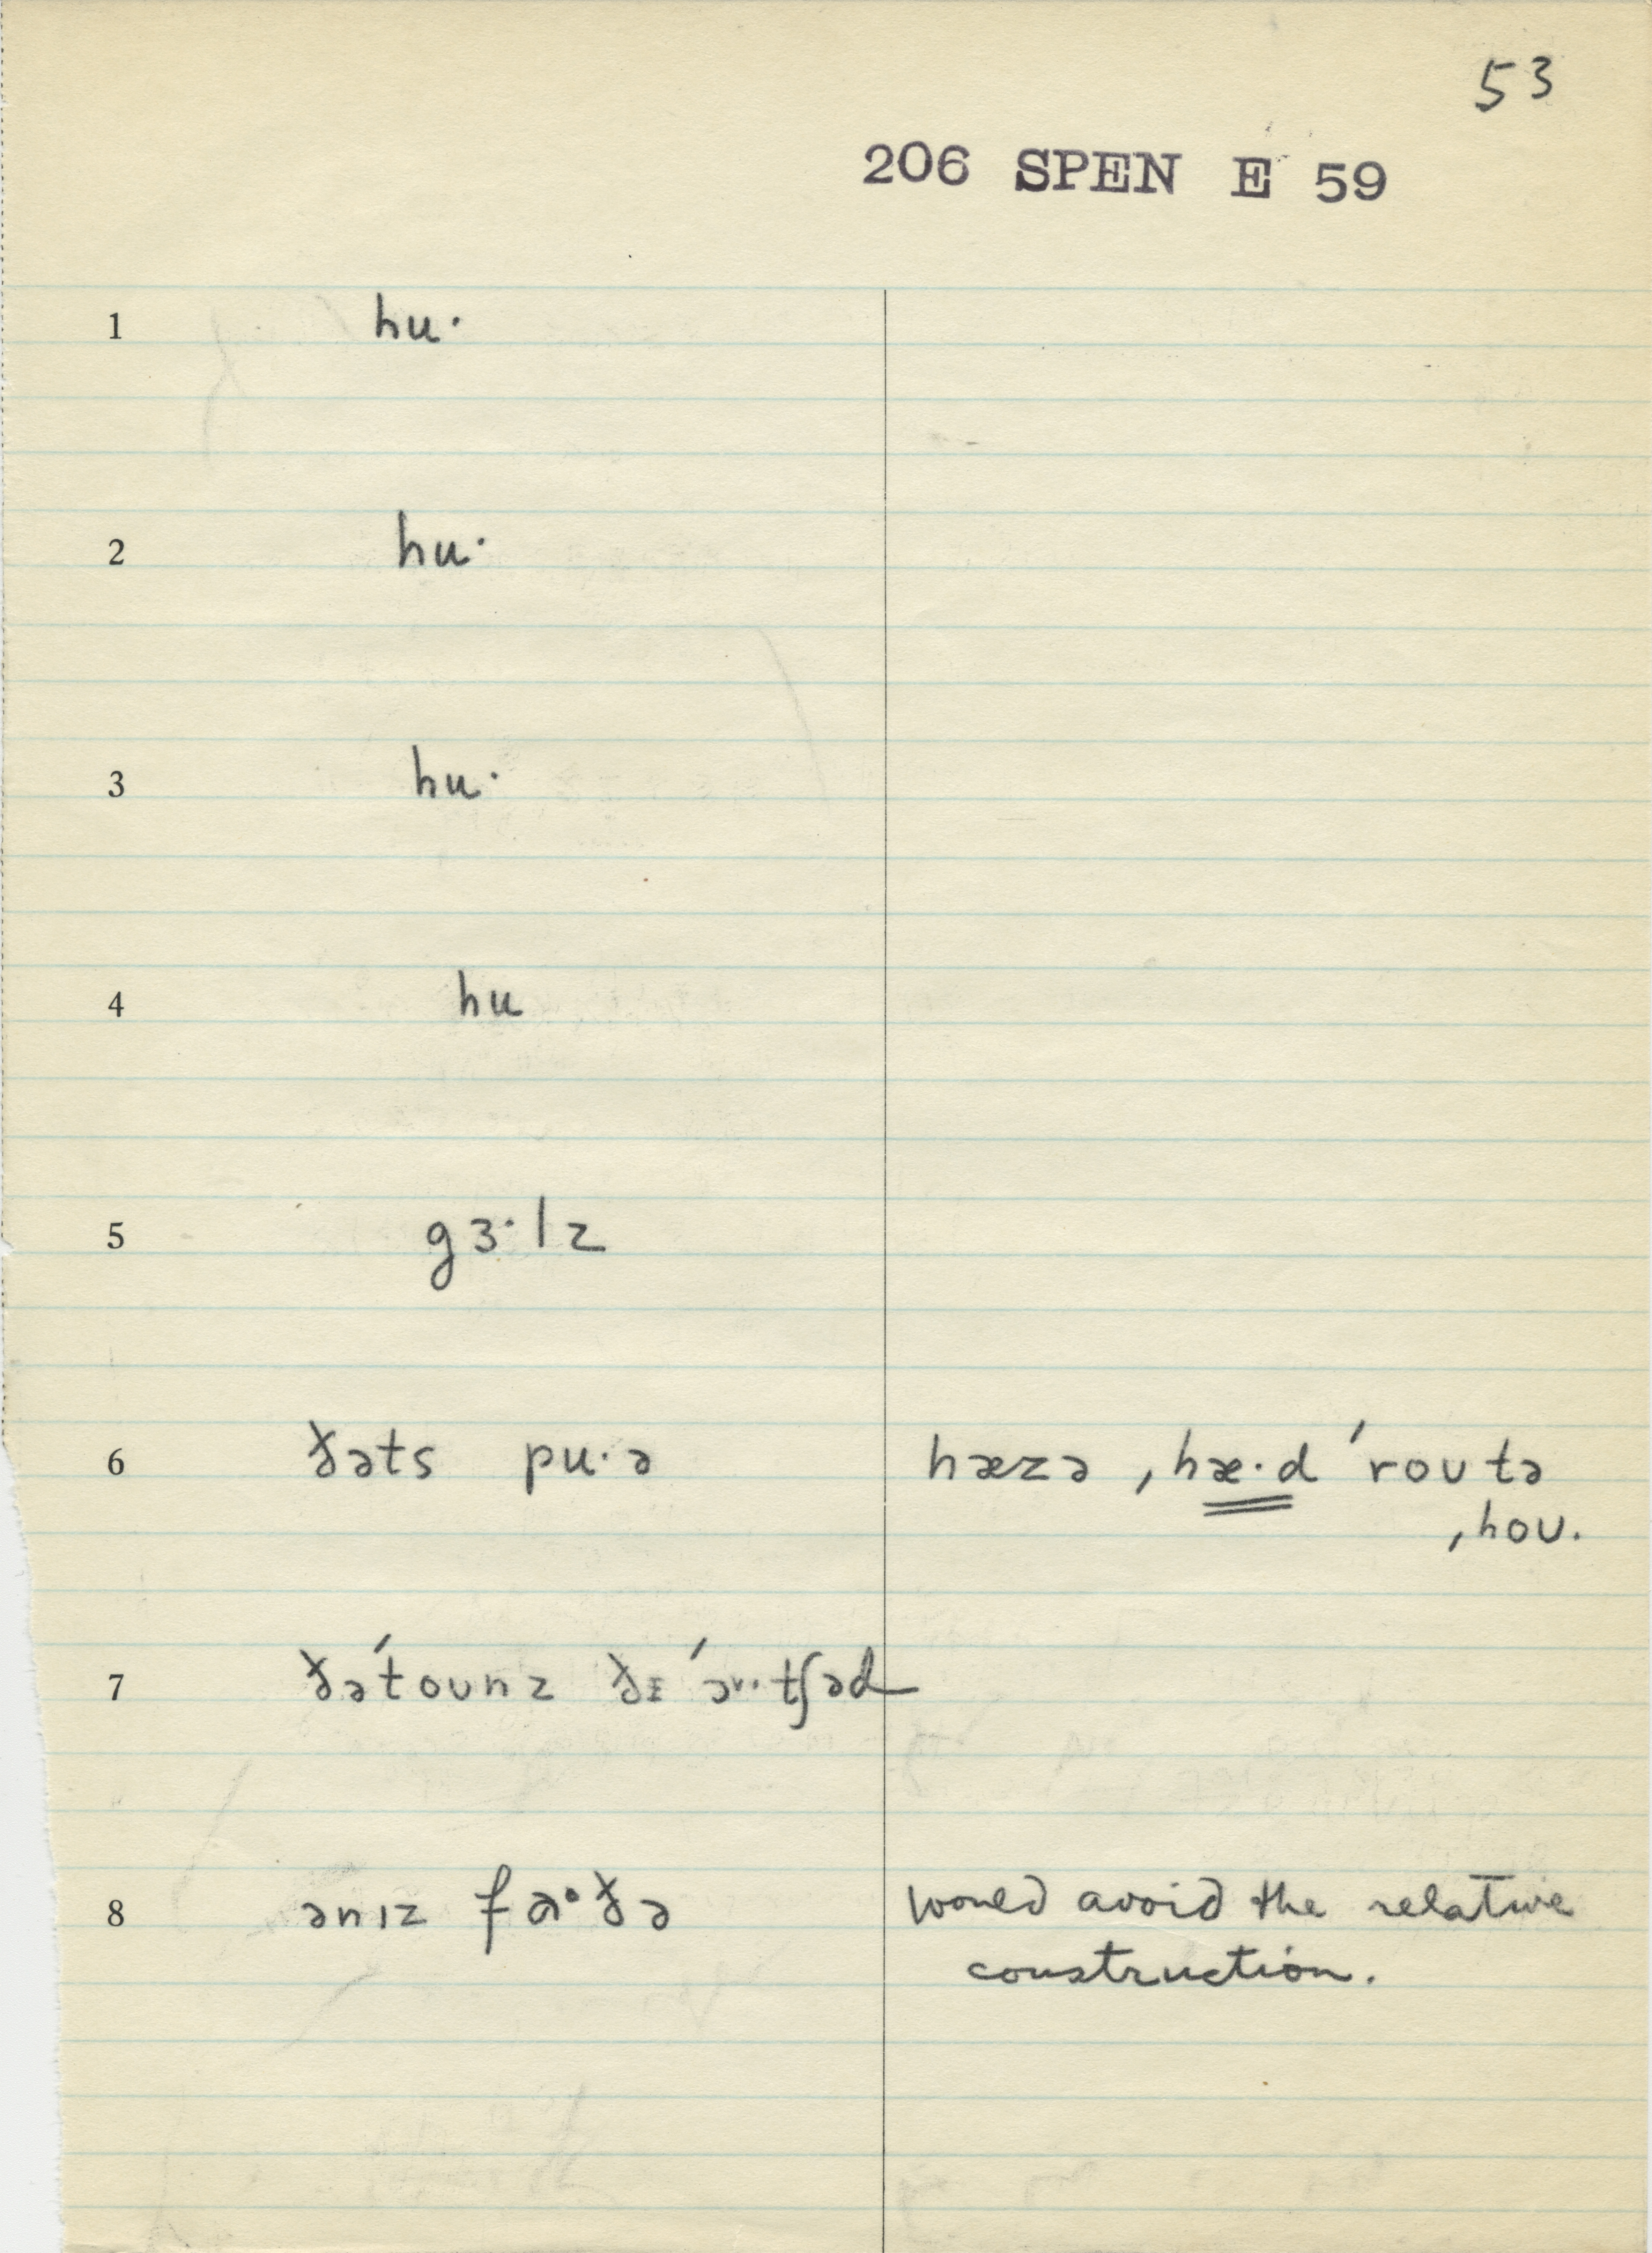 53
206 SPEN E 59
1 hu·
2 hu·
3 hu·
4 hu
5 gɜ·lz
6 ðəts pu·ə hæzə ˌhæ·d ˈroutə
ˌhoʊ.
7 ðəˈtoʊnz ðɪ ˈɚ·tʃəd
8 ənɪz fa·ðə would avoid the relative
construction.